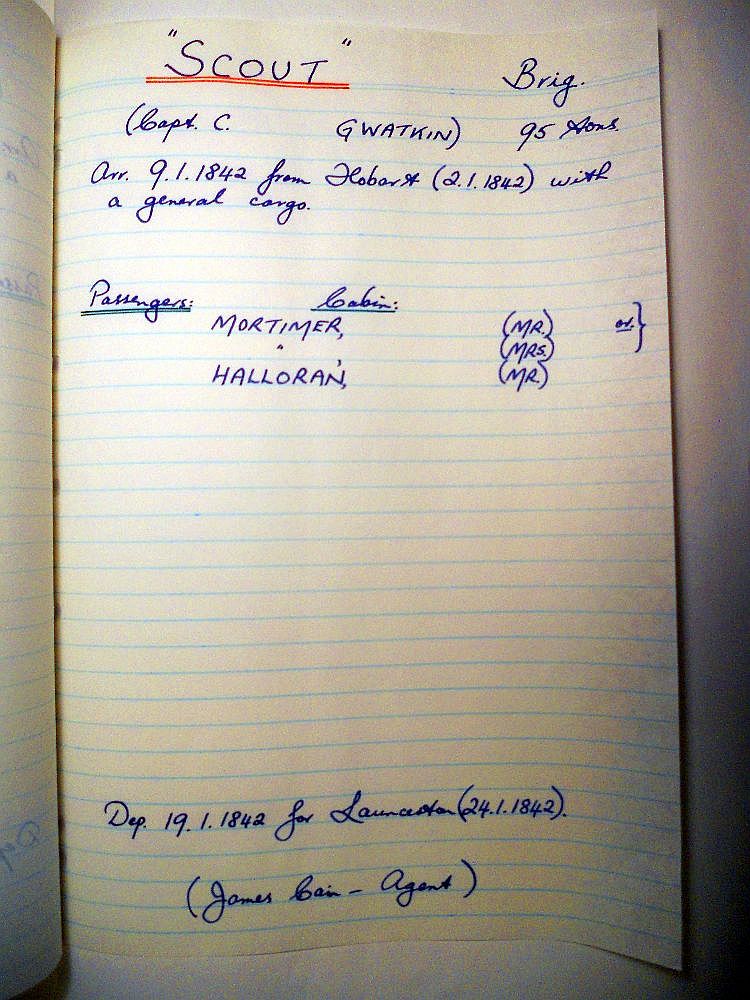 "SCOUT" Brig.
(Capt. C. GWATKIN) 95 tons.
Arr. 9.1.1842 from Hobart (2.1.1842) with
a general cargo.
Passengers: Cabin:
MORTIMER, (MR.)
" , (MRS.)
HALLORAN, (MR.)
Dep. 19.1.1842 for Launceston (24.1.1842).
(James Cain - Agent)